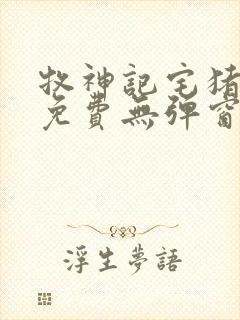 牧神記宅猪
免費無弹窗
浮生夢語